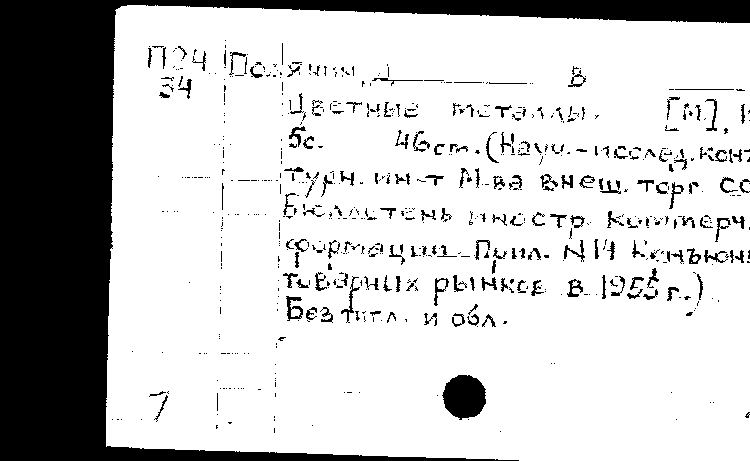 П24 Полянин, Д В
34
Цветные металлы. [М],
5с. 46см. (Науч.-исслед. конъ
турн. ин-т М-ва внеш. торг. СС
Бюллетень иностр. коммерч.
формации. Прил. N14 Конъюн
товарных рынков в 1955 г.)
Без титл. и обл.
7